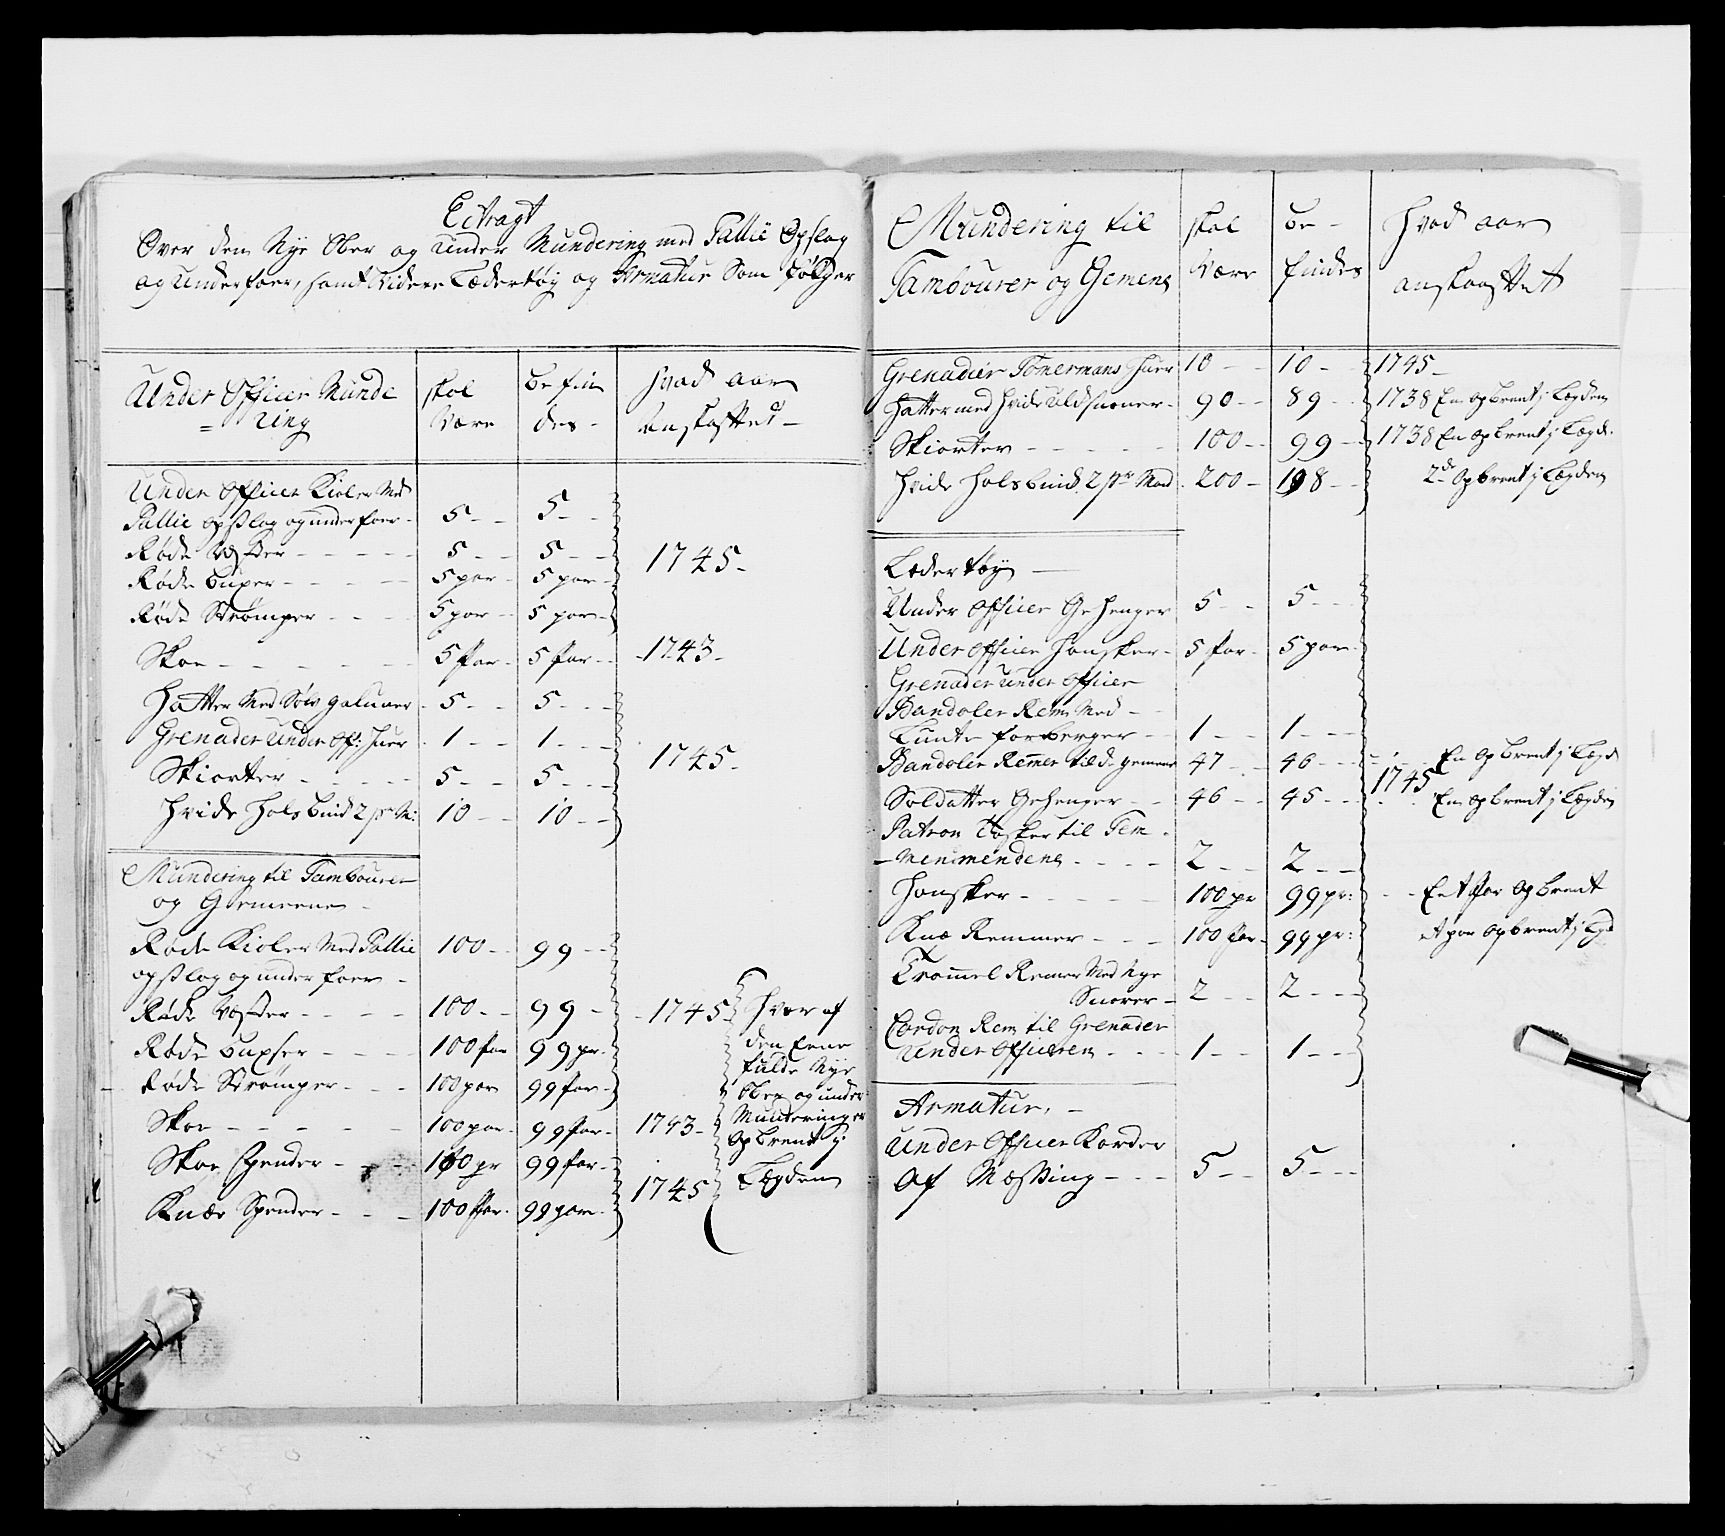 Extragt
Over den Nye Ober og Under Mundering med Pallie Opslag
og Underfoer, samt Videre Lædertøy og Armatur Som følger
Under Officier Munde
= ring
skal
Være
befin
des -
hvad aar
Anskaffed -
Under Officier Kioler Med
Pallie opslag og underfoer - 5 - - 5 - -
Røde Vester - - - - - 5 - - 5 - -
1745 -
Røde buxer - - - - - 5 par - 5 par -
Røde Strømper - - - - 5 par - 5 par -
Skoe - - - - - - 5 par - 5 par - - 1743 -
Hatter Med Sølv galuner - 5 - - 5 - - -
Grenader Under Off: huer - 1 - - 1 - - -
1745 -
Skiorter - - - - - 5 - - 5 - - -
Hvide Halsbind 2 pr M: 10 - - 10 - -
Mundering til Tambourer
og Gemeene -
Røde Kioler Med Pallie 100 - - 99 - -
opslag og underfoer -
Røde Vester - - - - 100 - - 99 - - 1745 -
Røde buxser - - - - 100 par 99 pr -
Røde Strømper - - - 100 par 99 par -
Skoe - - - - - - 100 par - 99 par - 1743 -
Skoe spender - - - - 100 pr 99 par -
1745
Knæe Spender - - - 100 par - 99 par -
Hvor af
den Eene
fulde Nye
Ober og under
Munderinger
Opbrent j:
Lægden
Mundering til
Tambourer og Gemene
skal
Være
be -
findes
hvad aar
anskaffet
Grenadier Tømermans huer 10 - - 10 - - 1745 -
Hatter med hvide Uldsnorer - 90 - - 89 - - 1738 En opbrent j Lægden
Skiorter - - - - - 100 - - 99 - - 1738 En opbrent j Lægd:
Hvide Halsbind 2 pr Mand - 200 - 198 - - 2de Opbrent j Lægden
Lædertøy -
Under Officier Gehenger 5 - - 5 - - -
Under Officier Hansker - 5 par - 5 par -
Grenader Under Officier
Bandoler Rem Med -
Lunte forberger - - 1 - - 1 - - -
Bandoler Remer til de gemene 47 - - 46 - - - En Opbrent j Lægd
1745
Soldatter Gehenger - - 46 - - 45 - - - En opbrent j Lægden
Patron Tasker til Tem -
- mermendene - - - - 2 - - 2 - -
Hansker - - - - - 100 pr 99 pr: - - Eet par Opbrent
Knæ Remmer - - - 100 par - 99 pr: Et par opbrent j Lgd
Trommel Remer Med Nye
Snorer - 2 - - 2 - - -
Cordon Rem til Grenader
Under Officeren - - - - 1 - - 1 - -
Armatur, -
Under Officier Korder
af Messing - - - 5 - - 5 - - -